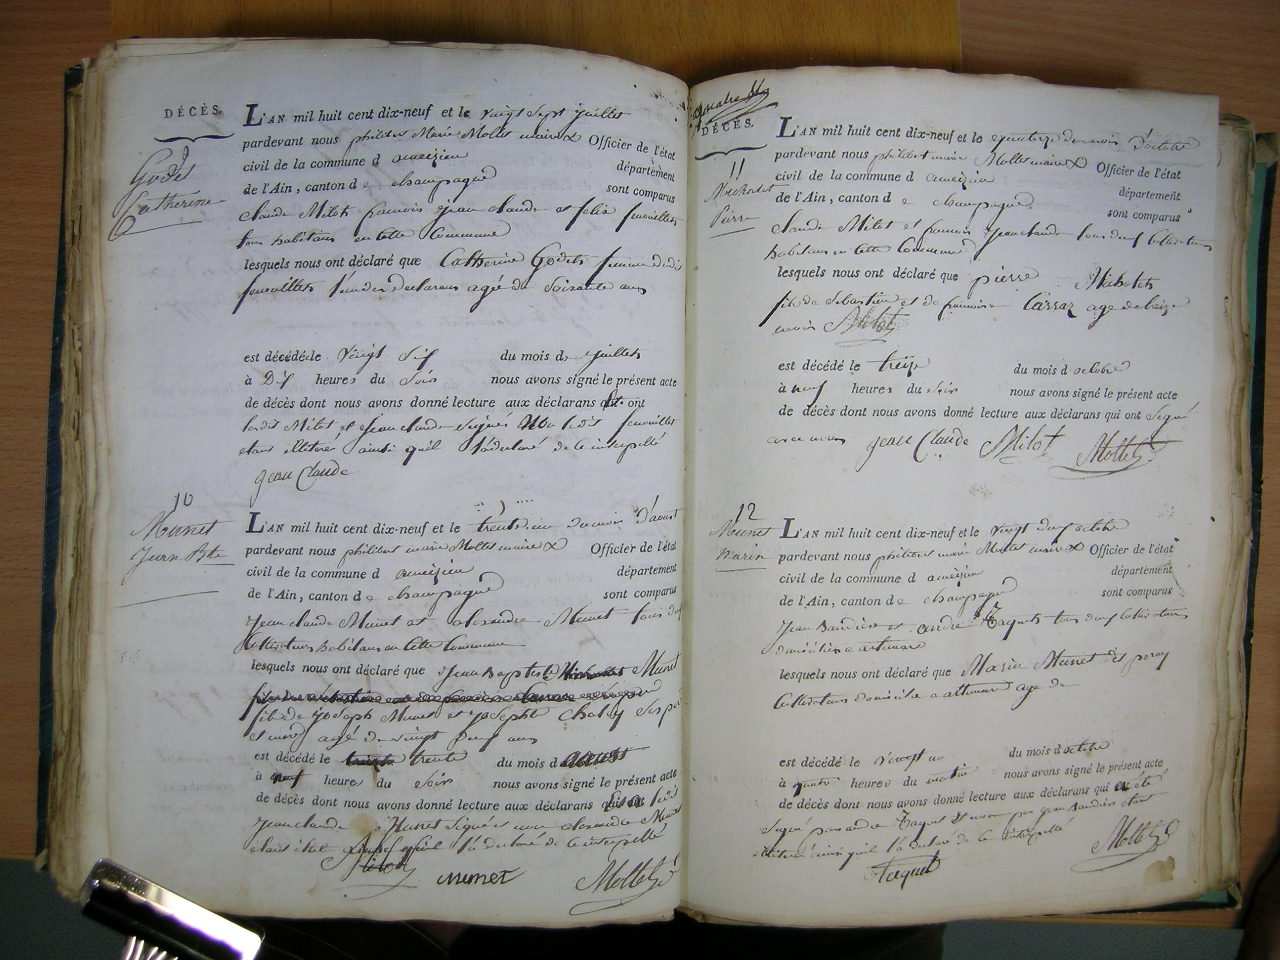 DÉCÈS.
Godet
Catherine
L'AN mil huit cent dix-neuf et le vingt sept juillet
pardevant nous philibert Marie Mollet maire Officier de l'état
civil de la commune d ameizieu département
de l'Ain, canton de champagne sont comparus
Claude Milot françois jean claude et felix
tous habitans en cette Commune
lesquels nous ont déclaré que Catherine Godet femme
agée de Soixante ans
est décédé le vingt Six du mois de juillet
à Dix heures du Soir nous avons signé le présent acte
de décès dont nous avons donné lecture aux déclarans ont
les dits Milot et jean claude signés Non le dit
étant illiteré ainsi qu'il l'a déclaré de ce interpellé
jean Claude
10
Munet
Jean Bte
L'AN mil huit cent dix-neuf et le trente un du mois d'aoust
pardevant nous philibert marie Mollet maire Officier de l'état
civil de la commune d ameizieu département
de l'Ain, canton de champagne sont comparus
jean claude Munet et alexandre Munet tous deux
Cultivateurs habitans en cette Commune
lesquels nous ont déclaré que jean Baptiste Munet
fils de joseph Munet et josephte Chaley
agé de vingt deux ans
est décédé le trente du mois d aoust
à neuf heures du Soir nous avons signé le présent acte
de décès dont nous avons donné lecture aux déclarans qui ont le dit
jean claude Munet signé et non alexandre Munet
étant illiteré ainsi qu'il l'a déclaré de ce interpellé
Milot munet Mollet
quatre
DÉCÈS.
11
Pierre
L'AN mil huit cent dix-neuf et le quatorze du mois d'octobre
pardevant nous philibert marie Mollet maire Officier de l'état
civil de la commune d ameizieu département
de l'Ain, canton de champagne sont comparus
claude Milot et françois jean claude tous deux Cultivateurs
habitans en cette Commune
lesquels nous ont déclaré que pierre
fils de Sebastien et de françoise Carraz agé de treize
mois Milot
est décédé le treize du mois d octobre
à neuf heures du soir nous avons signé le présent acte
de décès dont nous avons donné lecture aux déclarans qui ont Signé
avec nous jean Claude Milot Mollet
12
Munet
Marie
L'AN mil huit cent dix-neuf et le vingt deux octobre
pardevant nous philibert marie Mollet maire Officier de l'état
civil de la commune d ameizieu département
de l'Ain, canton de champagne sont comparus
jean Baudier et andré Taquet tous deux Cultivateurs
domiciliés a artemare
lesquels nous ont déclaré que Marie Munet
Cultivateurs domicilié a artemare agé de
est décédé le vingt un du mois d octobre
à quatre heures du matin nous avons signé le présent acte
de décès dont nous avons donné lecture aux déclarans qui a été
signé par andré Taquet et non par jean Baudier étant
illiteré ainsi qu'il l'a declaré de ce interpellé
taquet Mollet